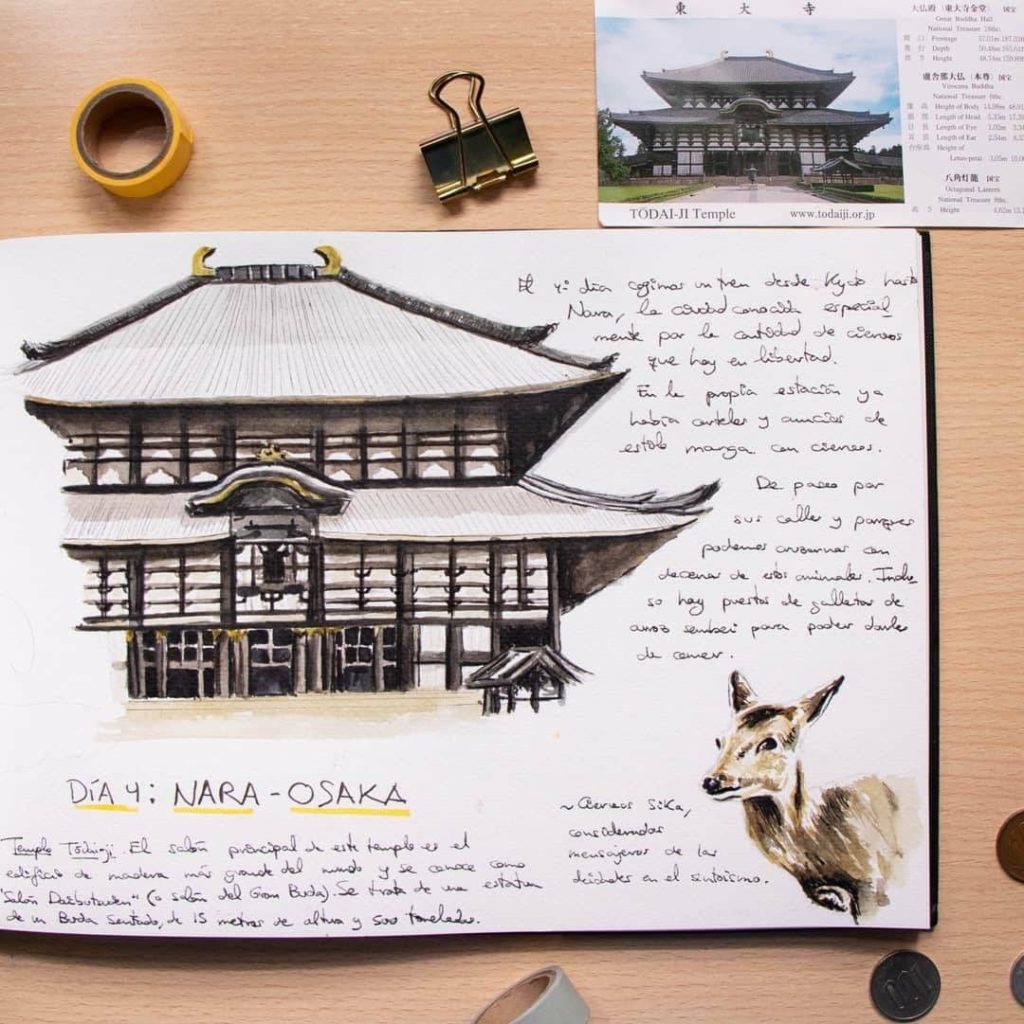 東 大 寺
大仏殿 (東大寺金堂) 国宝
Great Buddha Hall
National Treasure 18th c.
間 口 Frontage 57.01m 187.02ft
奥 行 Depth 50.48m
高 さ Height 48.74m
盧舎那大仏 (本尊) 国宝
Virocana Buddha
National Treasure 8th c.
Height of Body 14.98m
Length of Head 5.33m
Length of Eye 1.02m
Length of Ear 2.54m
Height of
Lotus-petal 3.05m
八角灯籠 国宝
Octagonal Lantern
National Treasure 8th c.
高 さ Height 4.62m
TŌDAI-JI Temple www.todaiji.or.jp
El 4º día cogimos un tren desde Kyoto hasta
Nara, la ciudad conocida especial
mente por la cantidad de ciervos
que hay en libertad.
En la propia estación ya
había carteles y anuncios de
estilo manga con ciervos.
De paseo por
sus calles y parques
podemos cruzarnos con
decenas de estos animales. Inclu
so hay puestos de galletas de
arroz sembei para poder darles
de comer.
DÍA 4: NARA - OSAKA
Templo Tōdai-ji. El salón principal de este templo es el
edificio de madera más grande del mundo y se conoce como
(o salón del Gran Buda). Se trata de una estatua
de un Buda sentado, de 15 metros de altura y 500 toneladas.
~ Ciervos Sika,
considerados
mensajeros de las
deidades en el sintoísmo.